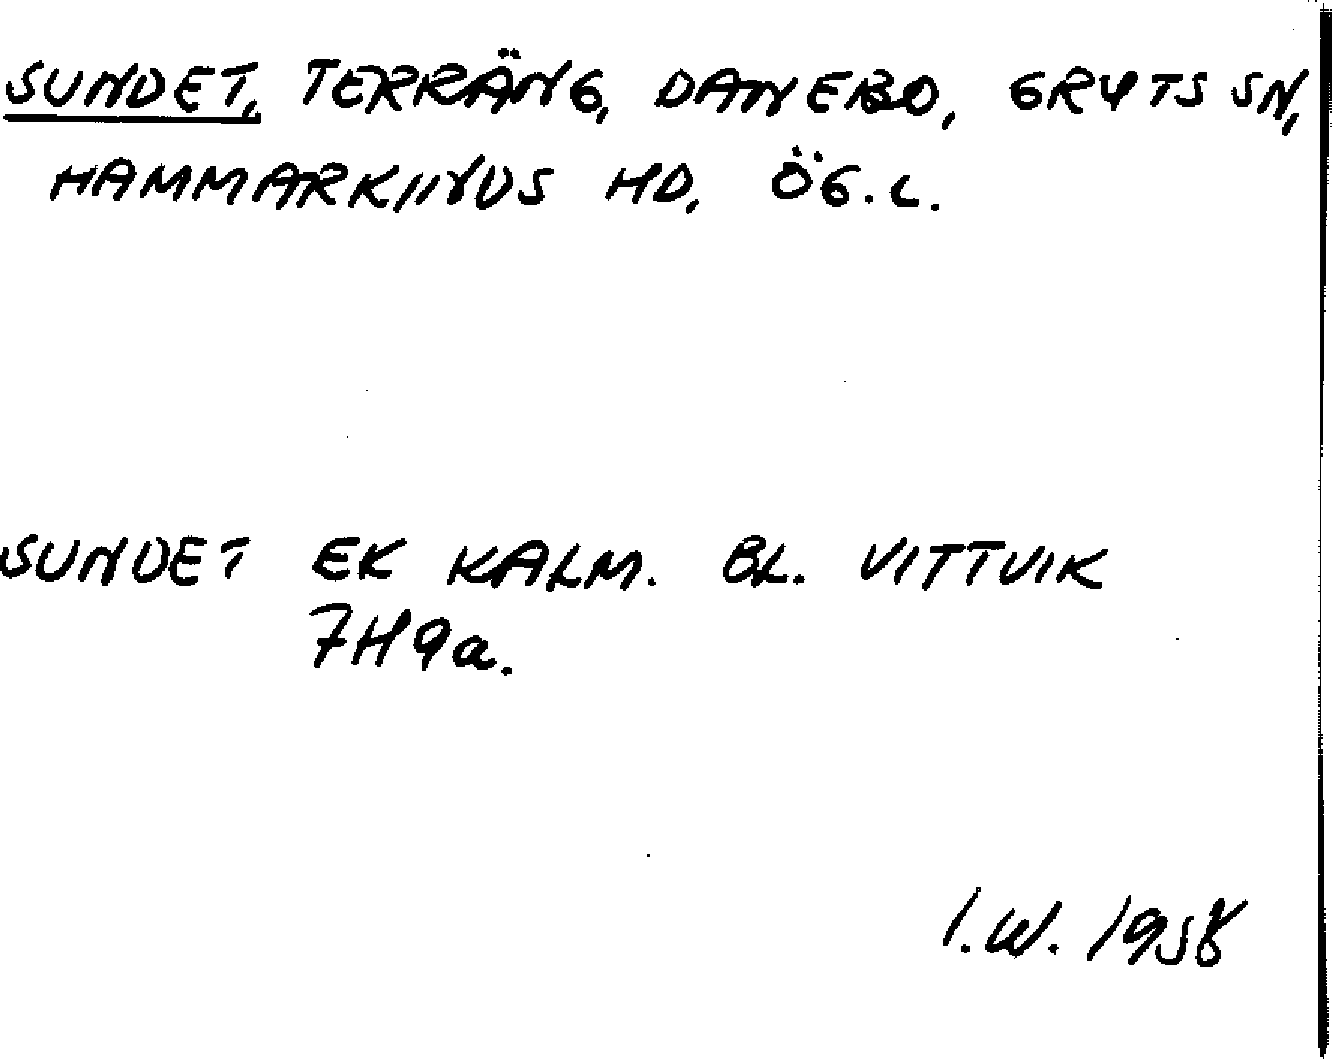 SUNDET, TERRÄNG, DANEBO, GRYTS SN,
HAMMARKINDS HD, ÖG.L.
SUNDET EK KALM. BL. VITTVIK
7H9a.
I.W. 1958